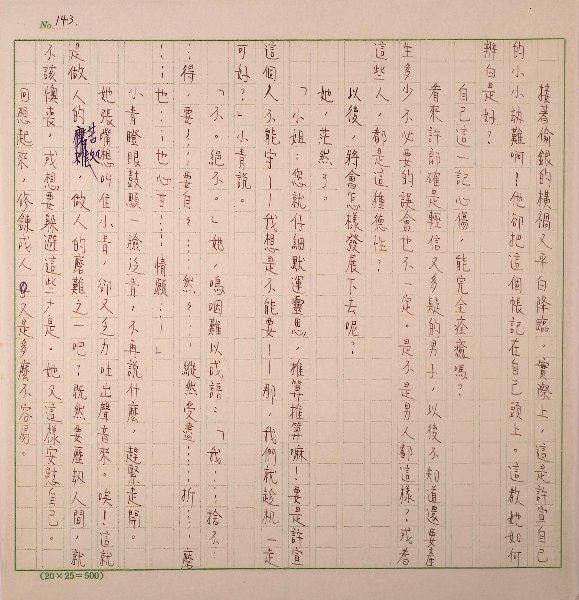 No. 143
接著偷銀的橫禍又平白降臨。實際上，這是許宣自己
的小小劫難啊！他卻把這個帳記在自己頭上。這教她如何
辨白是好？
自己這一記心傷，能完全痊癒嗎？
看來許郎確是輕信又多疑的男子，以後不知道還要產
生多少不必要的誤會也不一定。是不是男人都這樣？或者
這些人，都是這種德性？
以後，將會怎樣發展下去呢？
她，茫然了。
「小姐：您就仔細默運靈思，推算推算嘛！要是許宣
這個人不能守——我想是不能要——那，我們就趁机一走
可好？」小青說。
「不。絕不。」她，嗚咽難以成語：「我……捨不…
…得，要……要自々……然々……縱然受盡……折……磨
……也……也心甘……情願……」
小青瞪眼鼓顋一臉泛青，不再說什麼，趕緊走開。
她張嘴想叫住小青，卻又乏力吐出聲音來。唉！這就
是做人的苦歡，做人的磨難之一吧？既然要歷劫人間，就
不該懊喪，或想要躲避這些才是。她又這樣安慰自己。
回想起來，修鍊成人，又是多麼不容易。
(20×25=500)